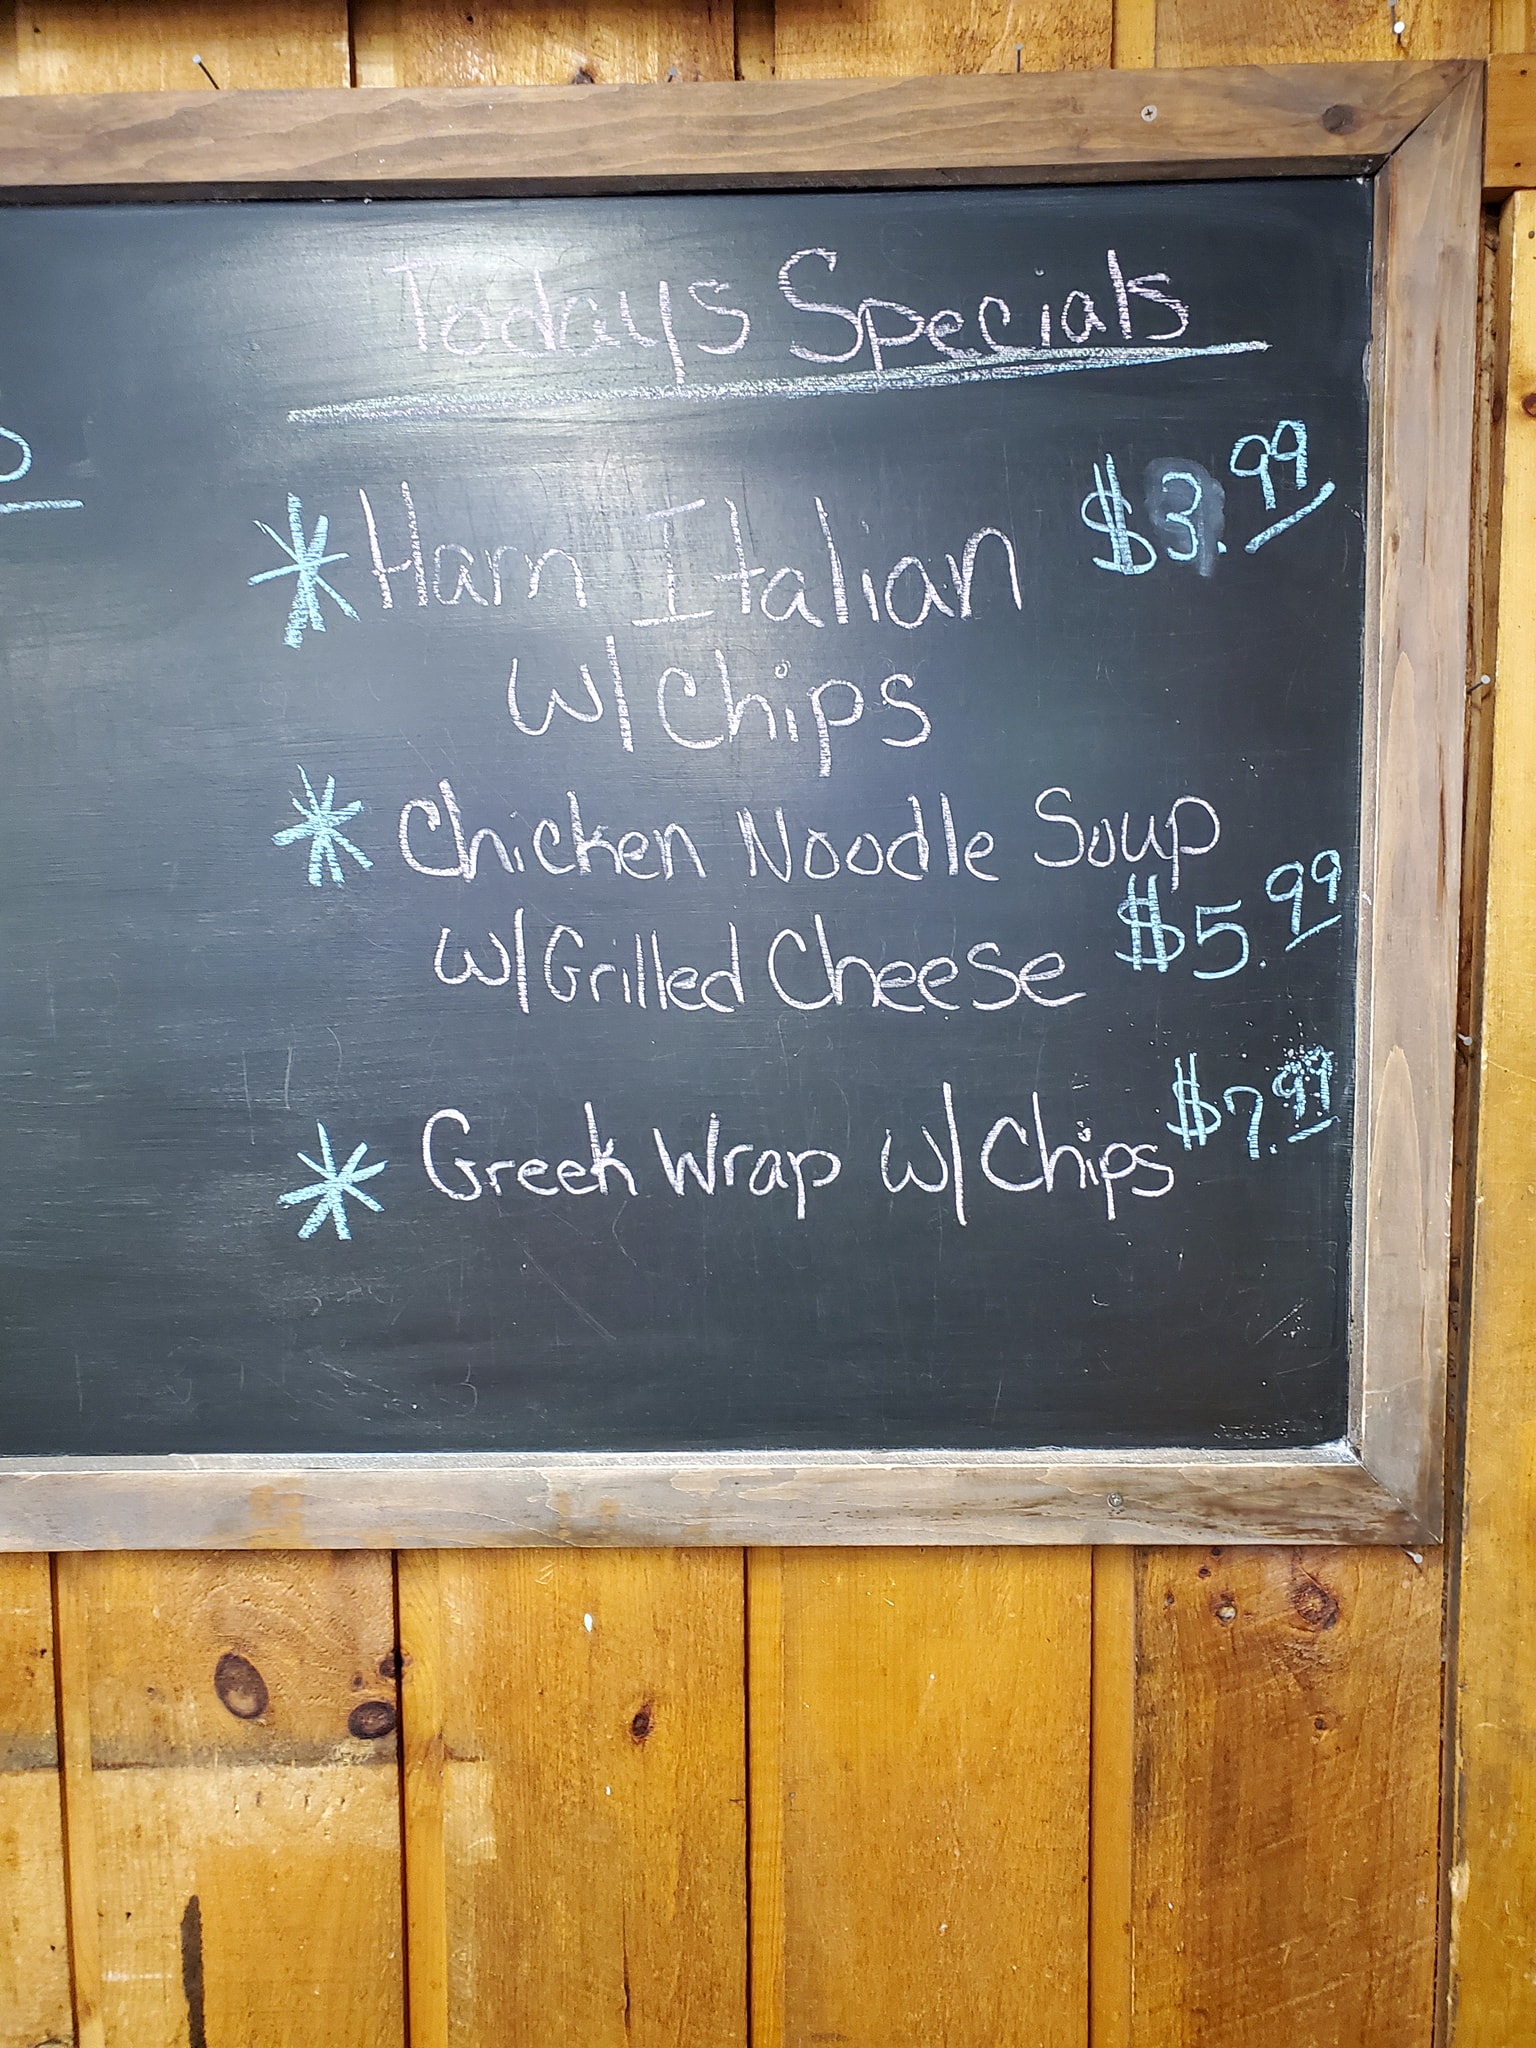 Todays Specials
* Ham Italian $3.99
w/ Chips
* Chicken Noodle Soup
w/ Grilled Cheese $5.99
* Greek Wrap w/ Chips $7.99